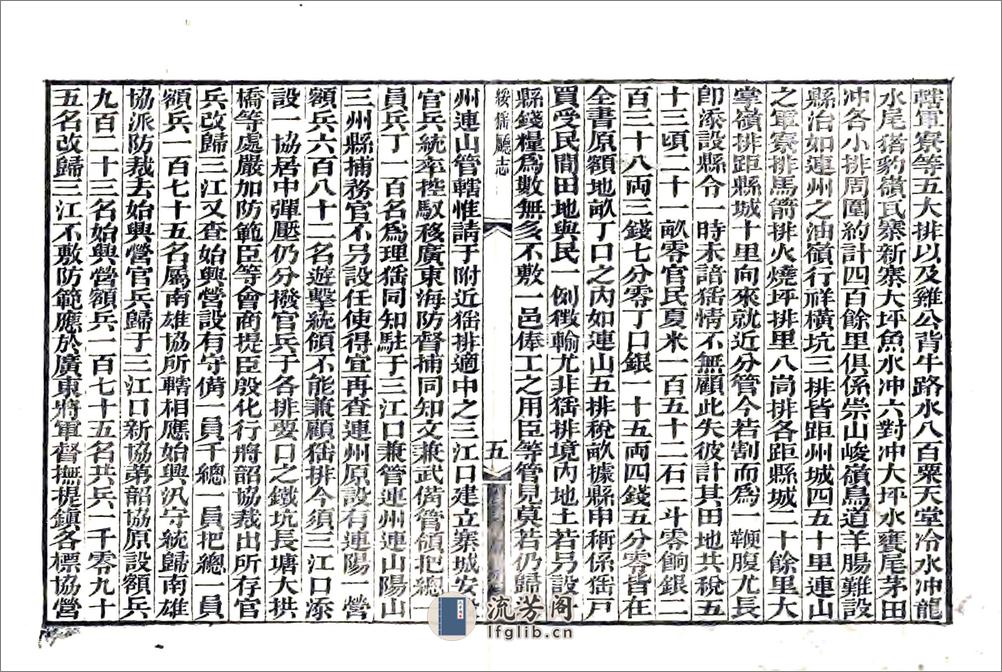 轄軍寮等五大排以及雞公背牛路水八百粟天堂冷水冲龍
水尾猪豹嶺瓦寨新寨大坪魚水冲六對冲大坪水甕尾茅田
冲各小排周圍約計四百餘里俱係崇山峻嶺鳥道羊腸難設
縣治如連州之油嶺行祥橫坑三排皆距州城四五十里連山
之軍寮排馬箭排火燒坪排里八峝排各距縣城二十餘里大
掌嶺排距縣城十里向來就近分管今若割而爲一鞭腹尤長
卽添設縣令一時未諳猺情不無顧此失彼計其田地共稅五
十三頃二十一畝零官民夏米一百五十二石二斗零餉銀二
百三十八両三錢七分零丁口銀一十五両四錢五分零皆在
全書原額地畝丁口之內如連山五排稅畝據縣申稱係猺戸
買受民間田地與民一例徵輸尤非猺排境內地土若另設一
縣錢糧爲數無多不敷一邑俸工之用臣等管見莫若仍歸連
綏猺廳志
五
州連山管轄惟請于附近猺排適中之三江口建立寨城安設
官兵統率控馭移廣東海防督捕同知文兼武備管領把總一
員兵丁一百名爲理猺同知駐于三江口兼管連州連山陽山
三州縣捕務官不另設任使得宜再查連州原設有連陽一營
額兵六百八十二名遊擊統領不能兼顧猺排今須三江口添
設一協居中彈壓仍分撥官兵于各排要口之鐵坑長塘大拱
橋等處嚴加防範臣等會商提臣殷化行將韶協裁出所存官
兵改歸三江又查始興營設有守備一員千總一員把總一員
額兵一百七十五名屬南雄協所轄相應始興汛守統歸南雄
協派防裁去始興營官兵歸于三江口新協第韶協原設額兵
九百二十三名始興營額兵一百七十五名共兵一千零九十
五名改歸三江不敷防範應於廣東將軍督撫提鎮各標協營
流芳阁
lfglib.cn